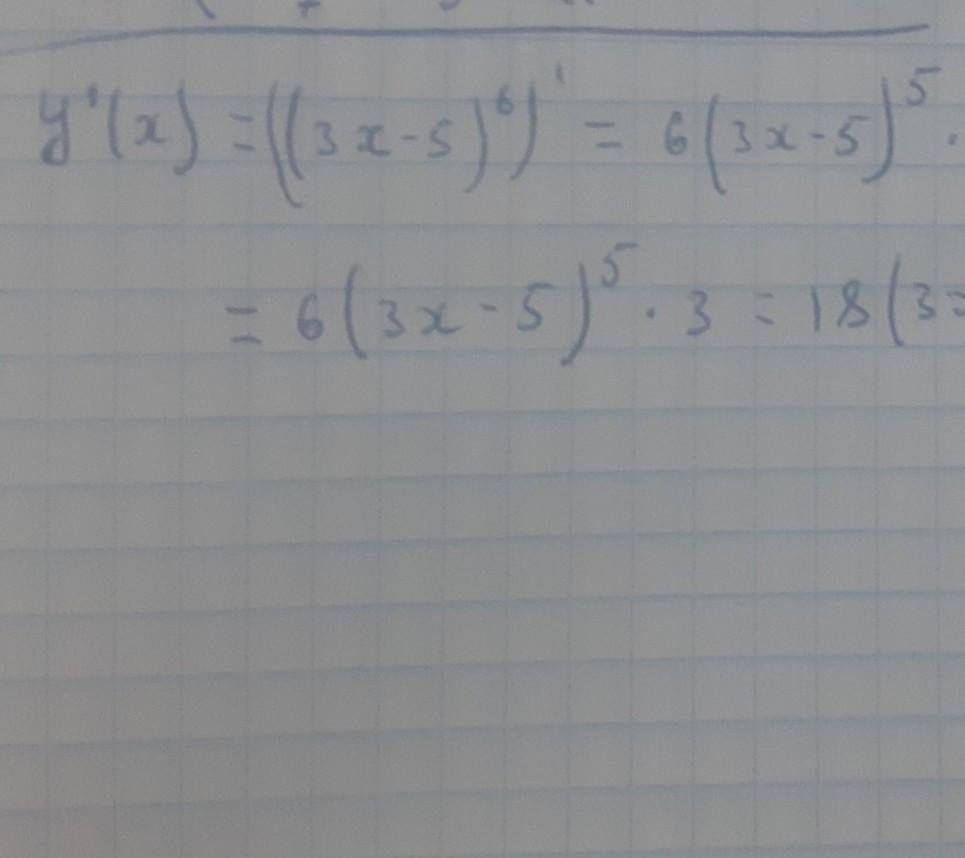 y'(x) = ((3x-5)^6)' = 6(3x-5)^5 ·
= 6(3x-5)^5 · 3 = 18(3